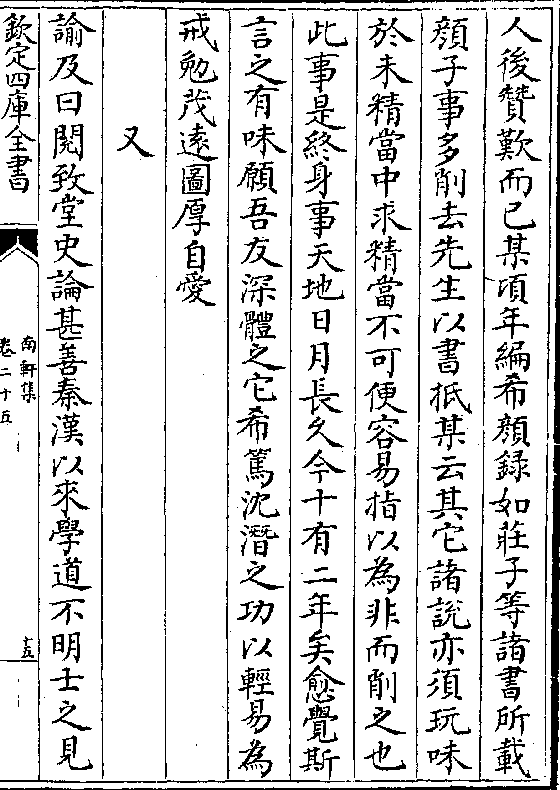 人後贊歎而已某頃年編希顔録如莊子等諸書所載
顔子事多削去先生以書抵某云其它諸説亦須玩味
於未精當中求精當不可便容易指以為非而削之也
此事是終身事天地日月長久今十有二年矣愈覺斯
言之有味願吾友深體之它希篤沈潛之功以輕易為
戒勉茂遠圖厚自愛
又
諭及日閲致堂史論甚善秦漢以來學道不明士之見
欽定四庫全書
南軒集
卷二十五
十五